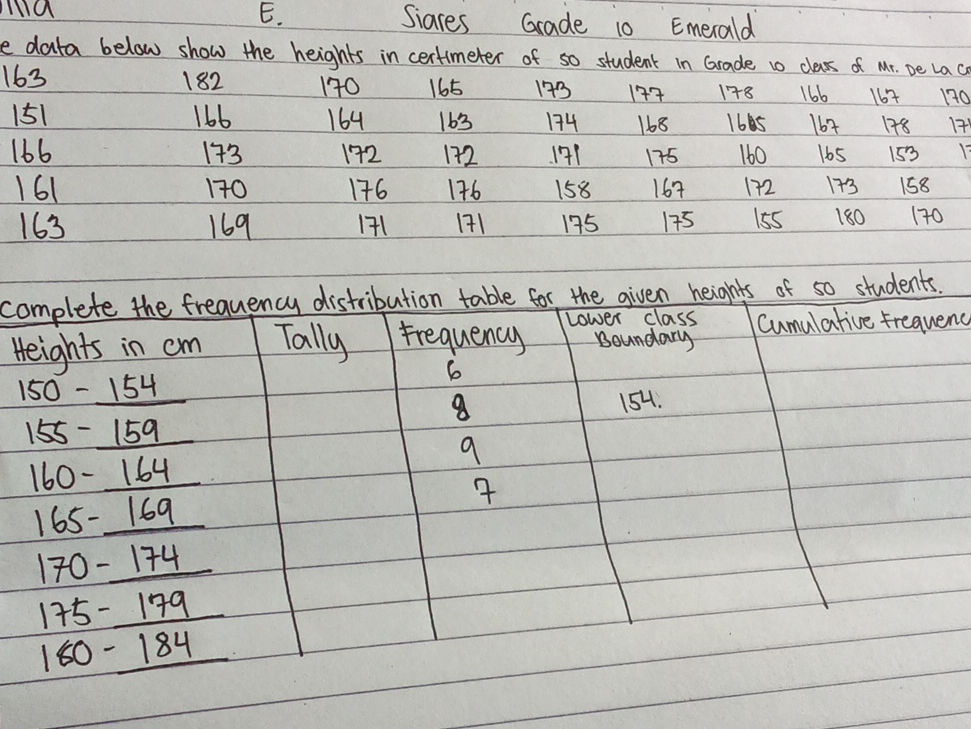 E. Siares Grade 10 Emerald
data below show the heights in certimeter of 50 student in Grade 10 class of Mr. De La
163 182 170 165 173 177 178 166 167 170
151 166 164 163 174 168 167 178
166 173 172 172 171 175 160 165 153
161 170 176 176 158 167 172 173 158
163 169 171 171 175 175 155 180 170
complete the frequency distribution table for the given heights of 50 students.
Heights in cm Tally Frequency Lower class Boundary Cumulative Frequenc
150 - 154 6
155 - 159 8 154.
160 - 164 9
165 - 169 7
170 - 174
175 - 179
180 - 184